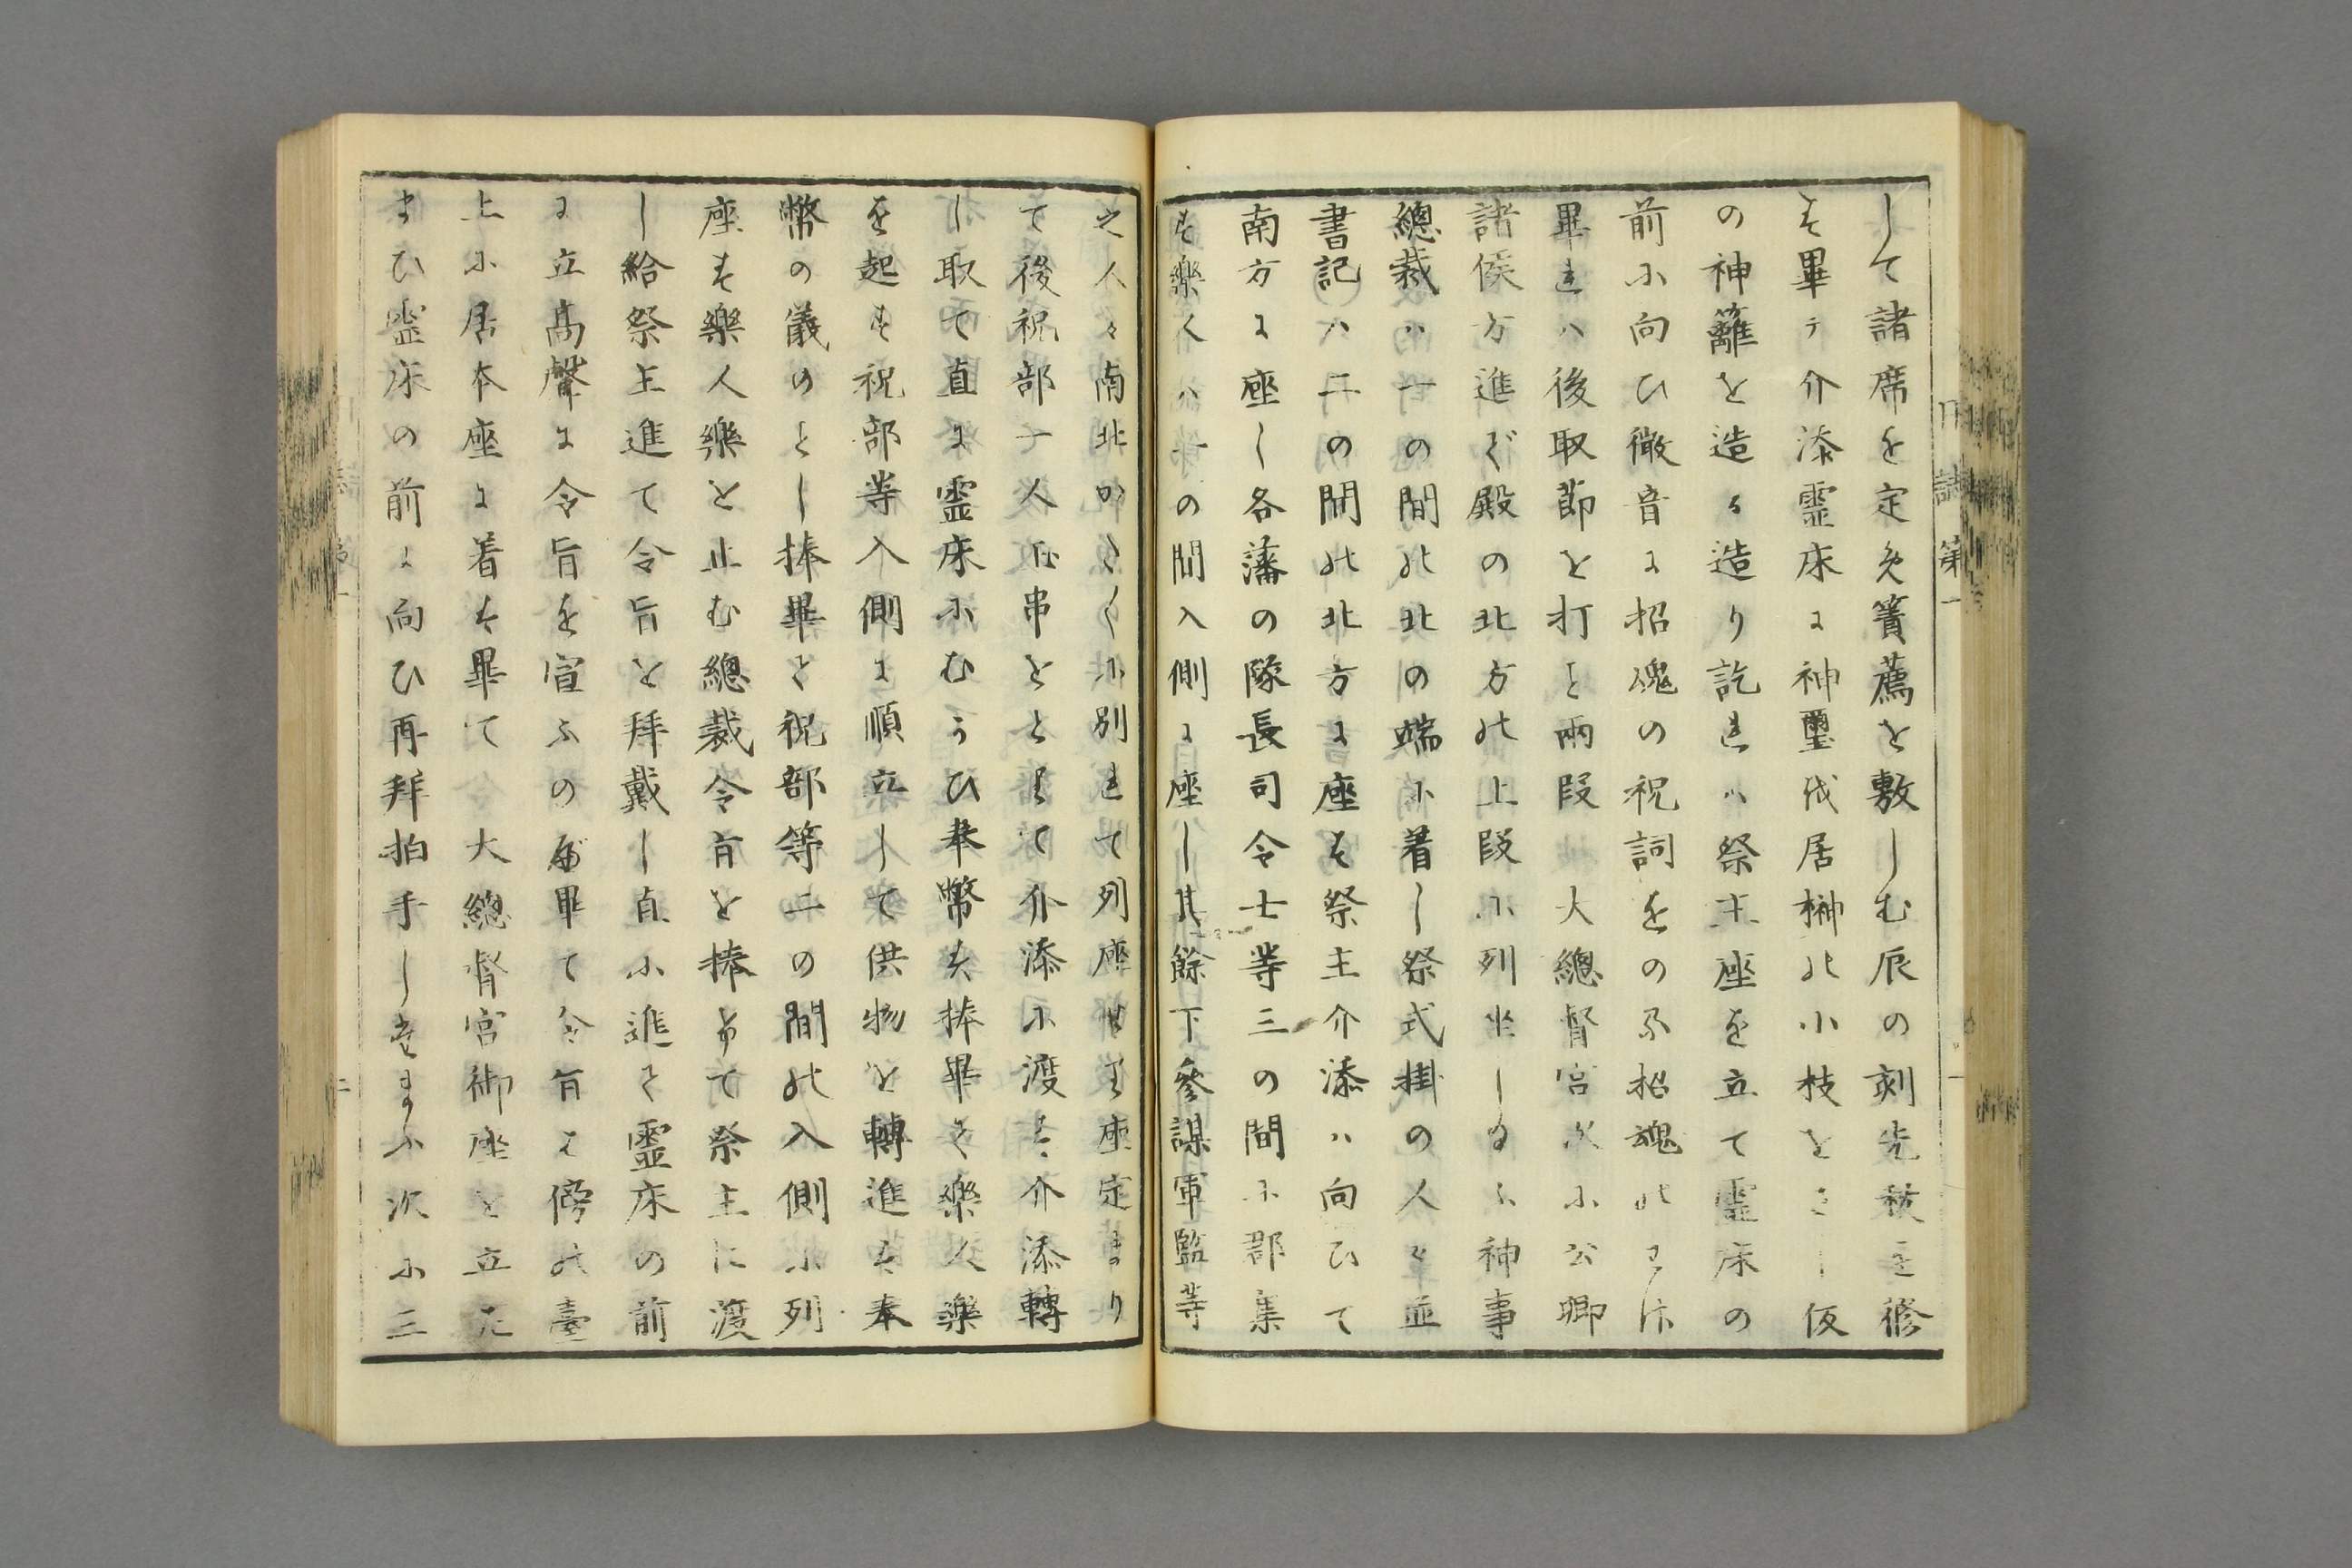 して諸席を定め簀薦を敷しむ辰の刻先祓を修
す畢テ介添靈床に神璽代居榊の小枝をさし仮
の神籬を造る造り訖れハ祭主座を立て靈床の
前に向ひ微音に招魂の祝詞をのる招魂の
畢れハ後取節を打と兩段大總督宮次に公卿
諸侯方進で殿の北方の上段に列坐しるふ神事
總裁ハ一の間の北の端に着し祭式掛の人々並
書記ハ二の間の北方に座す祭主介添ハ向ひて
南方に座し各藩の隊長司令士等三の間に郡集
す樂人ハの間入側に座し其餘下參謀軍監等
之人々南北かくに別れて列座せり座定まり
て後祝部一人玉串をとりて介添に渡す介添轉
し取て直に靈床にむかひ奉幣す捧畢て樂人樂
を起す祝部等入側に順立して供物を轉進す奉
幣の儀のとし捧畢て祝部等二の間の入側に列
座す樂人樂を止む總裁令旨を捧來て祭主に渡
し給祭主進て令旨を拜戴し直に進て靈床の前
に立高聲に令旨を宣ふの畢て令旨は傍の臺
上に居本座に着す畢て 大總督宮御座を立た
まひ靈床の前に向ひ再拜拍手しまふ次に三